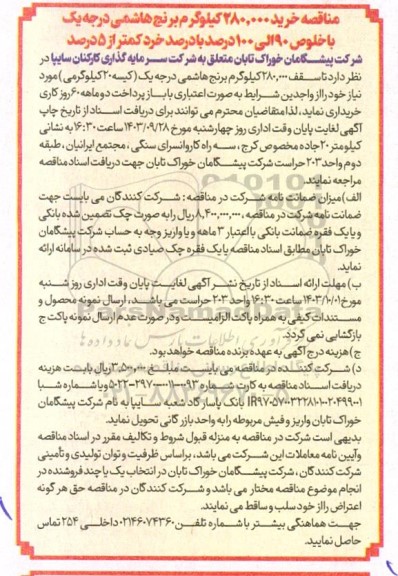 مناقصه خرید ۲۸۰,۰۰۰ کیلوگرم برنج هاشمی درجه یک
با خلوص ۹۰ الی ۱۰۰ درصد با درصد خرد کمتر از ۵ درصد
شرکت پیشگامان خوراک تابان متعلق به شرکت سرمایه گذاری کارکنان سایپا در
نظر دارد تا سقف ۲۸۰,۰۰۰ کیلوگرم برنج هاشمی درجه یک (کیسه ۲۰ کیلوگرمی) مورد
نیاز خود را از واجدین شرایط به صورت اعتباری با باز پرداخت دو ماهه ۶۰ روز کاری
خریداری نماید، لذا متقاضیان محترم می توانند برای دریافت اسناد از تاریخ چاپ
آگهی لغایت پایان وقت اداری روز چهارشنبه مورخ ۱۴۰۳/۰۹/۲۸ ساعت ۱۶:۳۰ به نشانی
کیلومتر ۲۰ جاده مخصوص کرج، سه راه کاروانسرای سنگی، مجتمع ایرانیان، طبقه
دوم واحد ۲۰۳ حراست شرکت پیشگامان خوراک تابان جهت دریافت اسناد مناقصه
مراجعه نمایند.
الف) میزان ضمانت نامه شرکت در مناقصه: شرکت کنندگان می بایست جهت
ضمانت نامه شرکت در مناقصه، ۸,۴۰۰,۰۰۰,۰۰۰ ریال را به صورت چک تضمین شده بانکی
و یا یک فقره ضمانت بانکی با اعتبار ۳ ماهه و یا واریز وجه به حساب شرکت پیشگامان
خوراک تابان مطابق اسناد مناقصه یا یک فقره چک صیادی ثبت شده در سامانه ارائه
نماید.
ب) مهلت ارائه اسناد از تاریخ نشر آگهی لغایت پایان وقت اداری روز شنبه
مورخ ۱۴۰۳/۱۰/۰۱ ساعت ۱۶:۳۰ واحد ۲۰۳ حراست می باشد، ارسال نمونه محصول و
مستندات کیفی به همراه پاکت الزامیست و در صورت عدم ارسال نمونه پاکت ج
بازگشایی نمی گردد.
ج) هزینه درج آگهی به عهده برنده مناقصه خواهد بود.
د) شرکت کننده در مناقصه می بایست مبلغ ۳,۵۰۰,۰۰۰ ریال بابت هزینه
دریافت اسناد مناقصه به کارت شماره
بانک پاسارگاد شعبه سایپا به نام شرکت پیشگامان
خوراک تابان واریز و فیش مربوطه را به واحد بازرگانی تحویل نماید.
بدیهی است شرکت در مناقصه به منزله قبول شروط و تکالیف مقرر در اسناد مناقصه
و آیین نامه معاملات این شرکت می باشد، براساس ظرفیت و توان تولیدی و تأمینی
شرکت کنندگان، شرکت پیشگامان خوراک تابان در انتخاب یک یا چند فروشنده در
انجام موضوع مناقصه مختار می باشد و شرکت کنندگان در مناقصه حق هر گونه
اعتراض را از خود سلب و ساقط می نمایند.
جهت هماهنگی بیشتر با شماره تلفن ۰۲۱۴۶۰۷۴۳۶۰ داخلی ۲۵۴ تماس
حاصل نمایید.